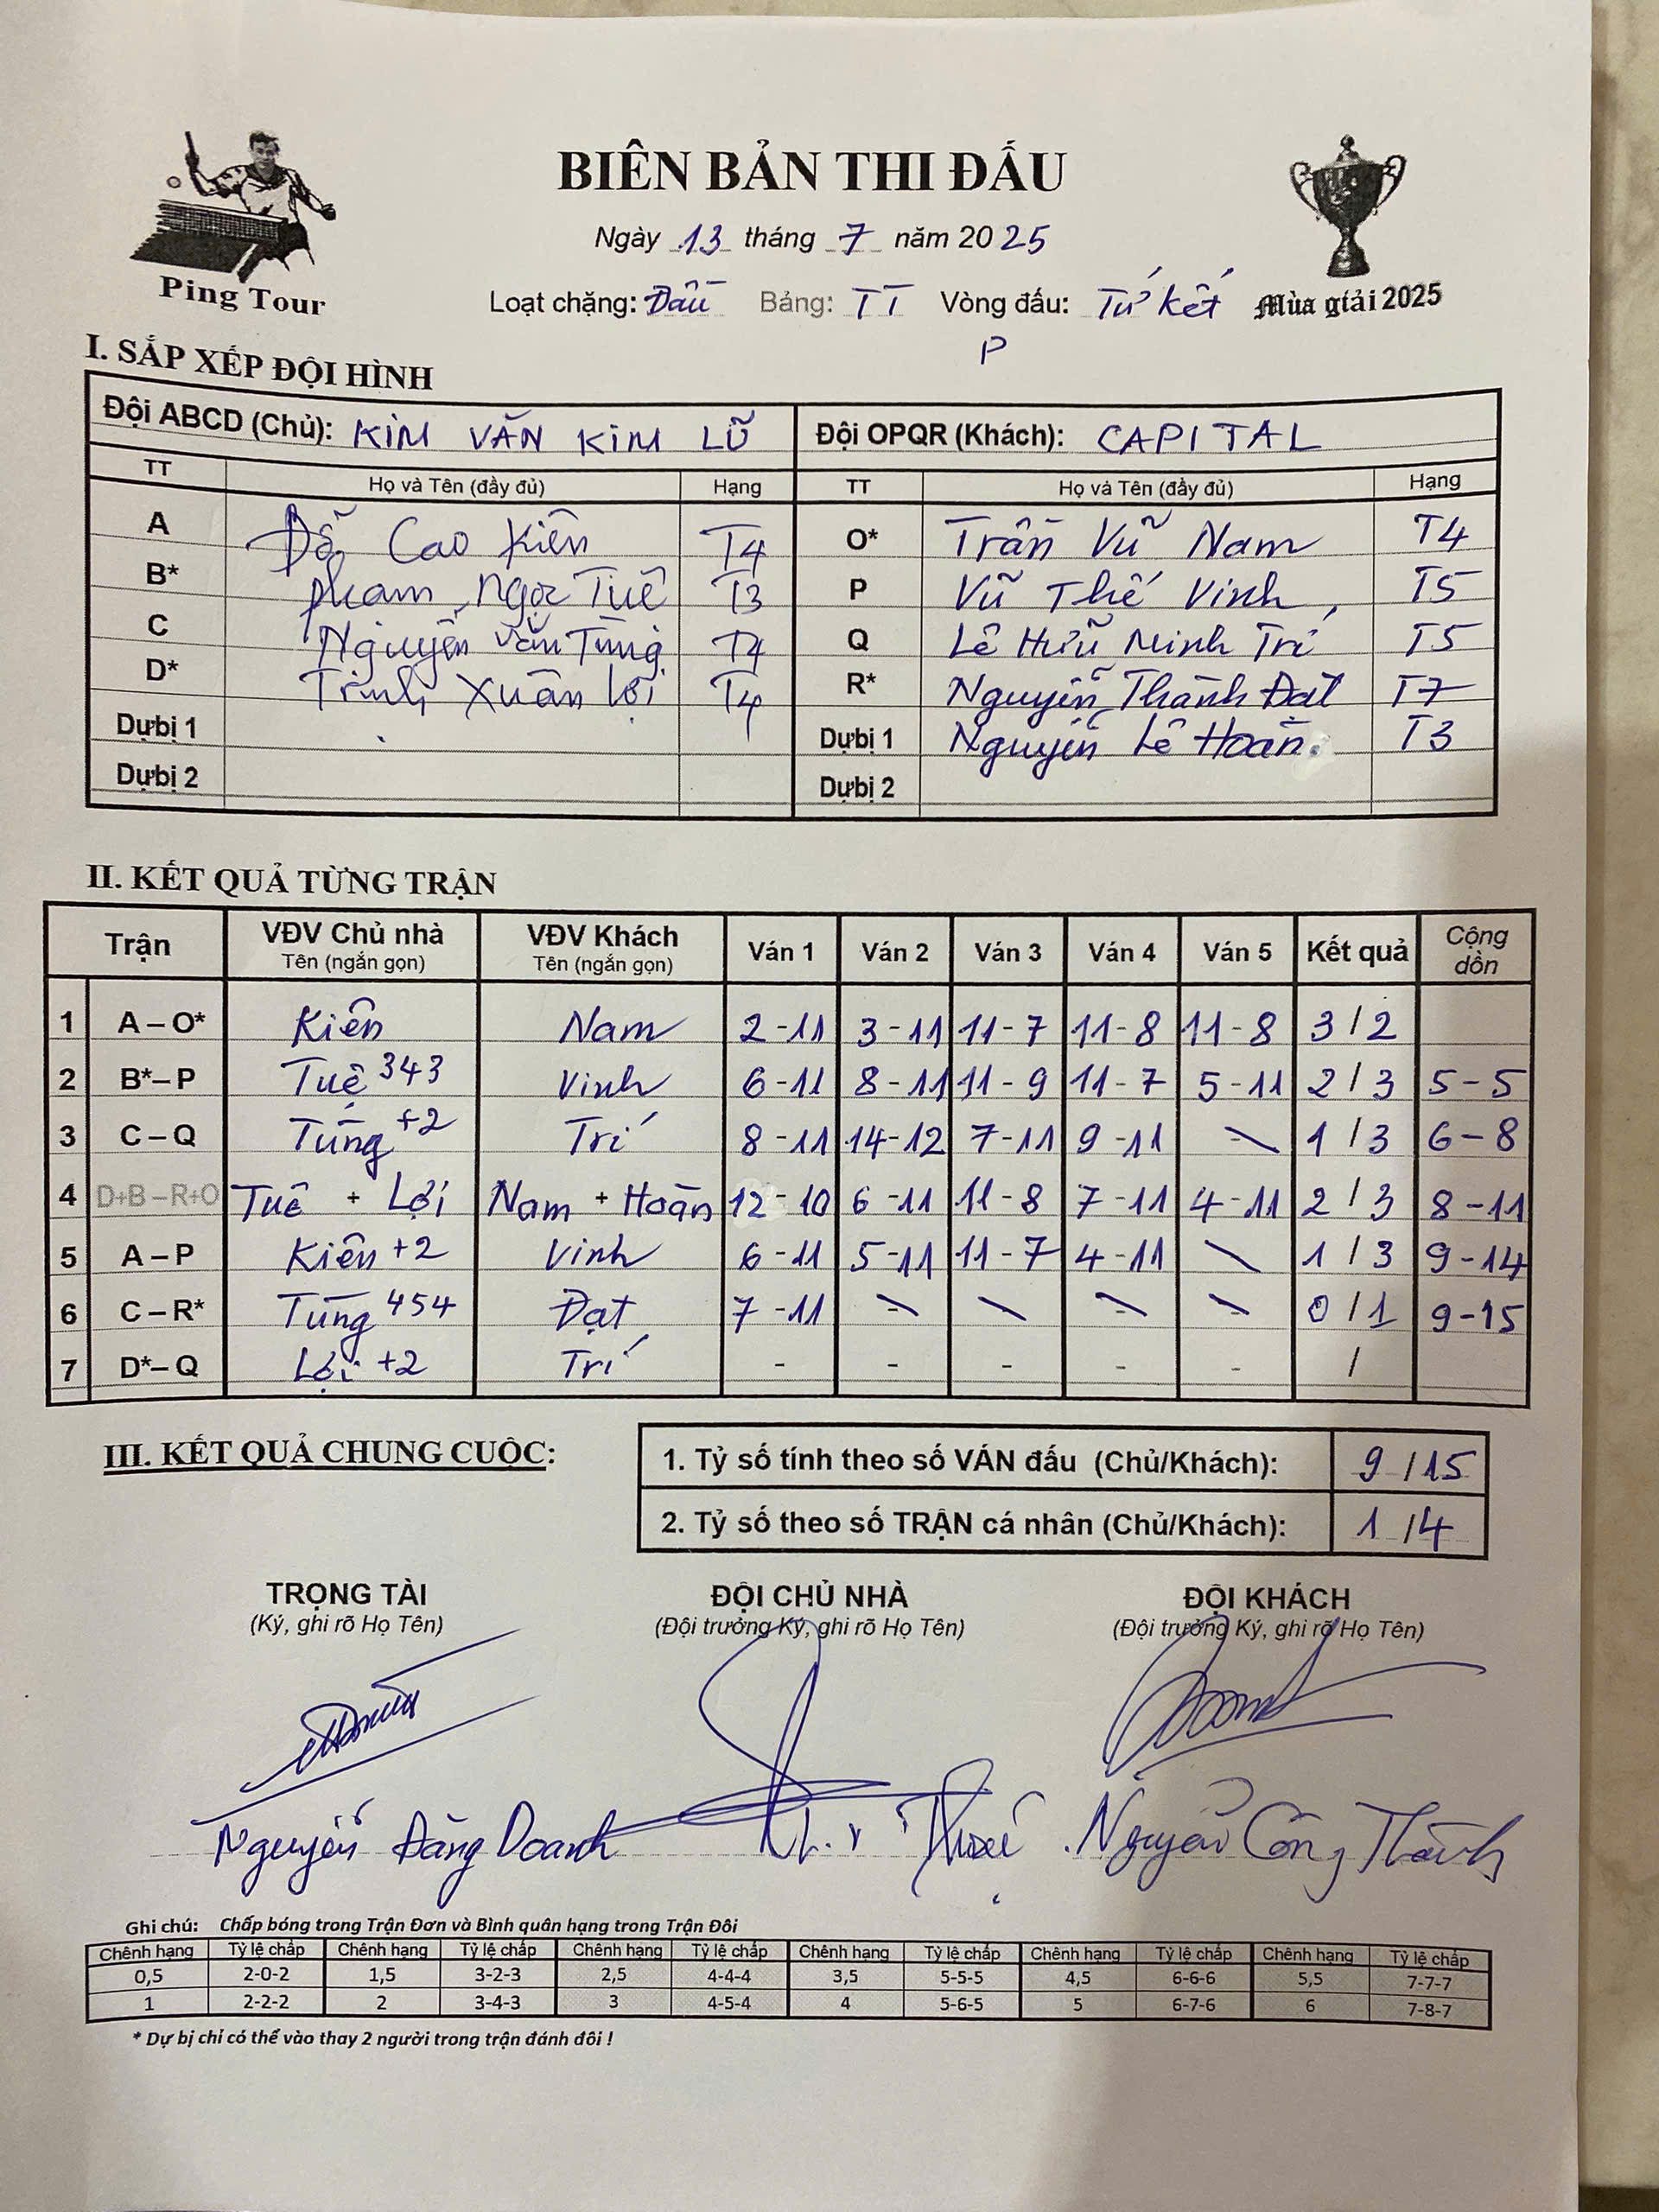 BIÊN BẢN THI ĐẤU
Ngày 13 tháng 7 năm 2025
Ping Tour
Loạt chặng: Đầu Bảng: TT Vòng đấu: Tứ kết Mùa giải 2025
P
I. SẮP XẾP ĐỘI HÌNH
Đội ABCD (Chủ): KIM VĂN KIM LŨ Đội OPQR (Khách): CAPITAL
TT Họ và Tên (đầy đủ) Hạng TT Họ và Tên (đầy đủ) Hạng
A Đỗ Cao Kiên T4 O* Trần Vũ Nam T4
B* Phạm Ngọc Tuê T3 P Vũ Thế Vinh T5
C Nguyễn Văn Tùng T4 Q Lê Hữu Minh Trí T5
D* Trịnh Xuân Lợi T4 R* Nguyễn Thành Đạt T7
Dự bị 1 Dự bị 1 Nguyễn Lê Hoàn T3
Dự bị 2 Dự bị 2
II. KẾT QUẢ TỪNG TRẬN
Trận VĐV Chủ nhà VĐV Khách Ván 1 Ván 2 Ván 3 Ván 4 Ván 5 Kết quả Cộng dồn
Tên (ngắn gọn) Tên (ngắn gọn)
1 A – O* Kiên Nam 2 - 11 3 - 11 11 - 7 11 - 8 11 - 8 3 / 2
2 B* – P Tuệ 343 Vinh 6 - 11 8 - 11 11 - 9 11 - 7 5 - 11 2 / 3 5 - 5
3 C – Q Tùng +2 Trí 8 - 11 14 - 12 7 - 11 9 - 11 \ 1 / 3 6 - 8
4 D+B – R+O Tuê + Lợi Nam + Hoàn 12 - 10 6 - 11 11 - 8 7 - 11 4 - 11 2 / 3 8 - 11
5 A – P Kiên +2 Vinh 6 - 11 5 - 11 11 - 7 4 - 11 \ 1 / 3 9 - 14
6 C – R* Tùng 454 Đạt 7 - 11 \ \ \ \ 0 / 1 9 - 15
7 D* – Q Lợi +2 Trí - - - - - /
III. KẾT QUẢ CHUNG CUỘC:
1. Tỷ số tính theo số VÁN đấu (Chủ/Khách): 9 / 15
2. Tỷ số theo số TRẬN cá nhân (Chủ/Khách): 1 / 4
TRỌNG TÀI ĐỘI CHỦ NHÀ ĐỘI KHÁCH
(Ký, ghi rõ Họ Tên) (Đội trưởng Ký, ghi rõ Họ Tên) (Đội trưởng Ký, ghi rõ Họ Tên)
Nguyễn Đăng Doanh Nguyễn Công Thành
Ghi chú: Chấp bóng trong Trận Đơn và Bình quân hạng trong Trận Đôi
Chênh hạng Tỷ lệ chấp Chênh hạng Tỷ lệ chấp Chênh hạng Tỷ lệ chấp Chênh hạng Tỷ lệ chấp Chênh hạng Tỷ lệ chấp Chênh hạng Tỷ lệ chấp
0,5 2-0-2 1,5 3-2-3 2,5 4-4-4 3,5 5-5-5 4,5 6-6-6 5,5 7-7-7
1 2-2-2 2 3-4-3 3 4-5-4 4 5-6-5 5 6-7-6 6 7-8-7
* Dự bị chỉ có thể vào thay 2 người trong trận đánh đôi !